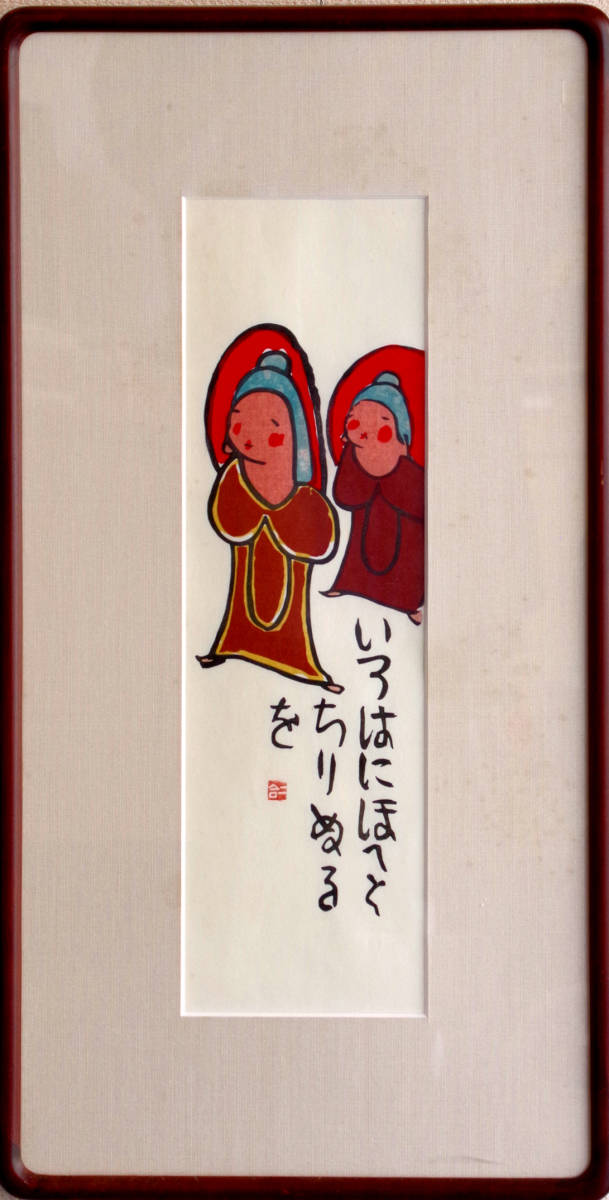 いろはにほへと
ちりぬる
を